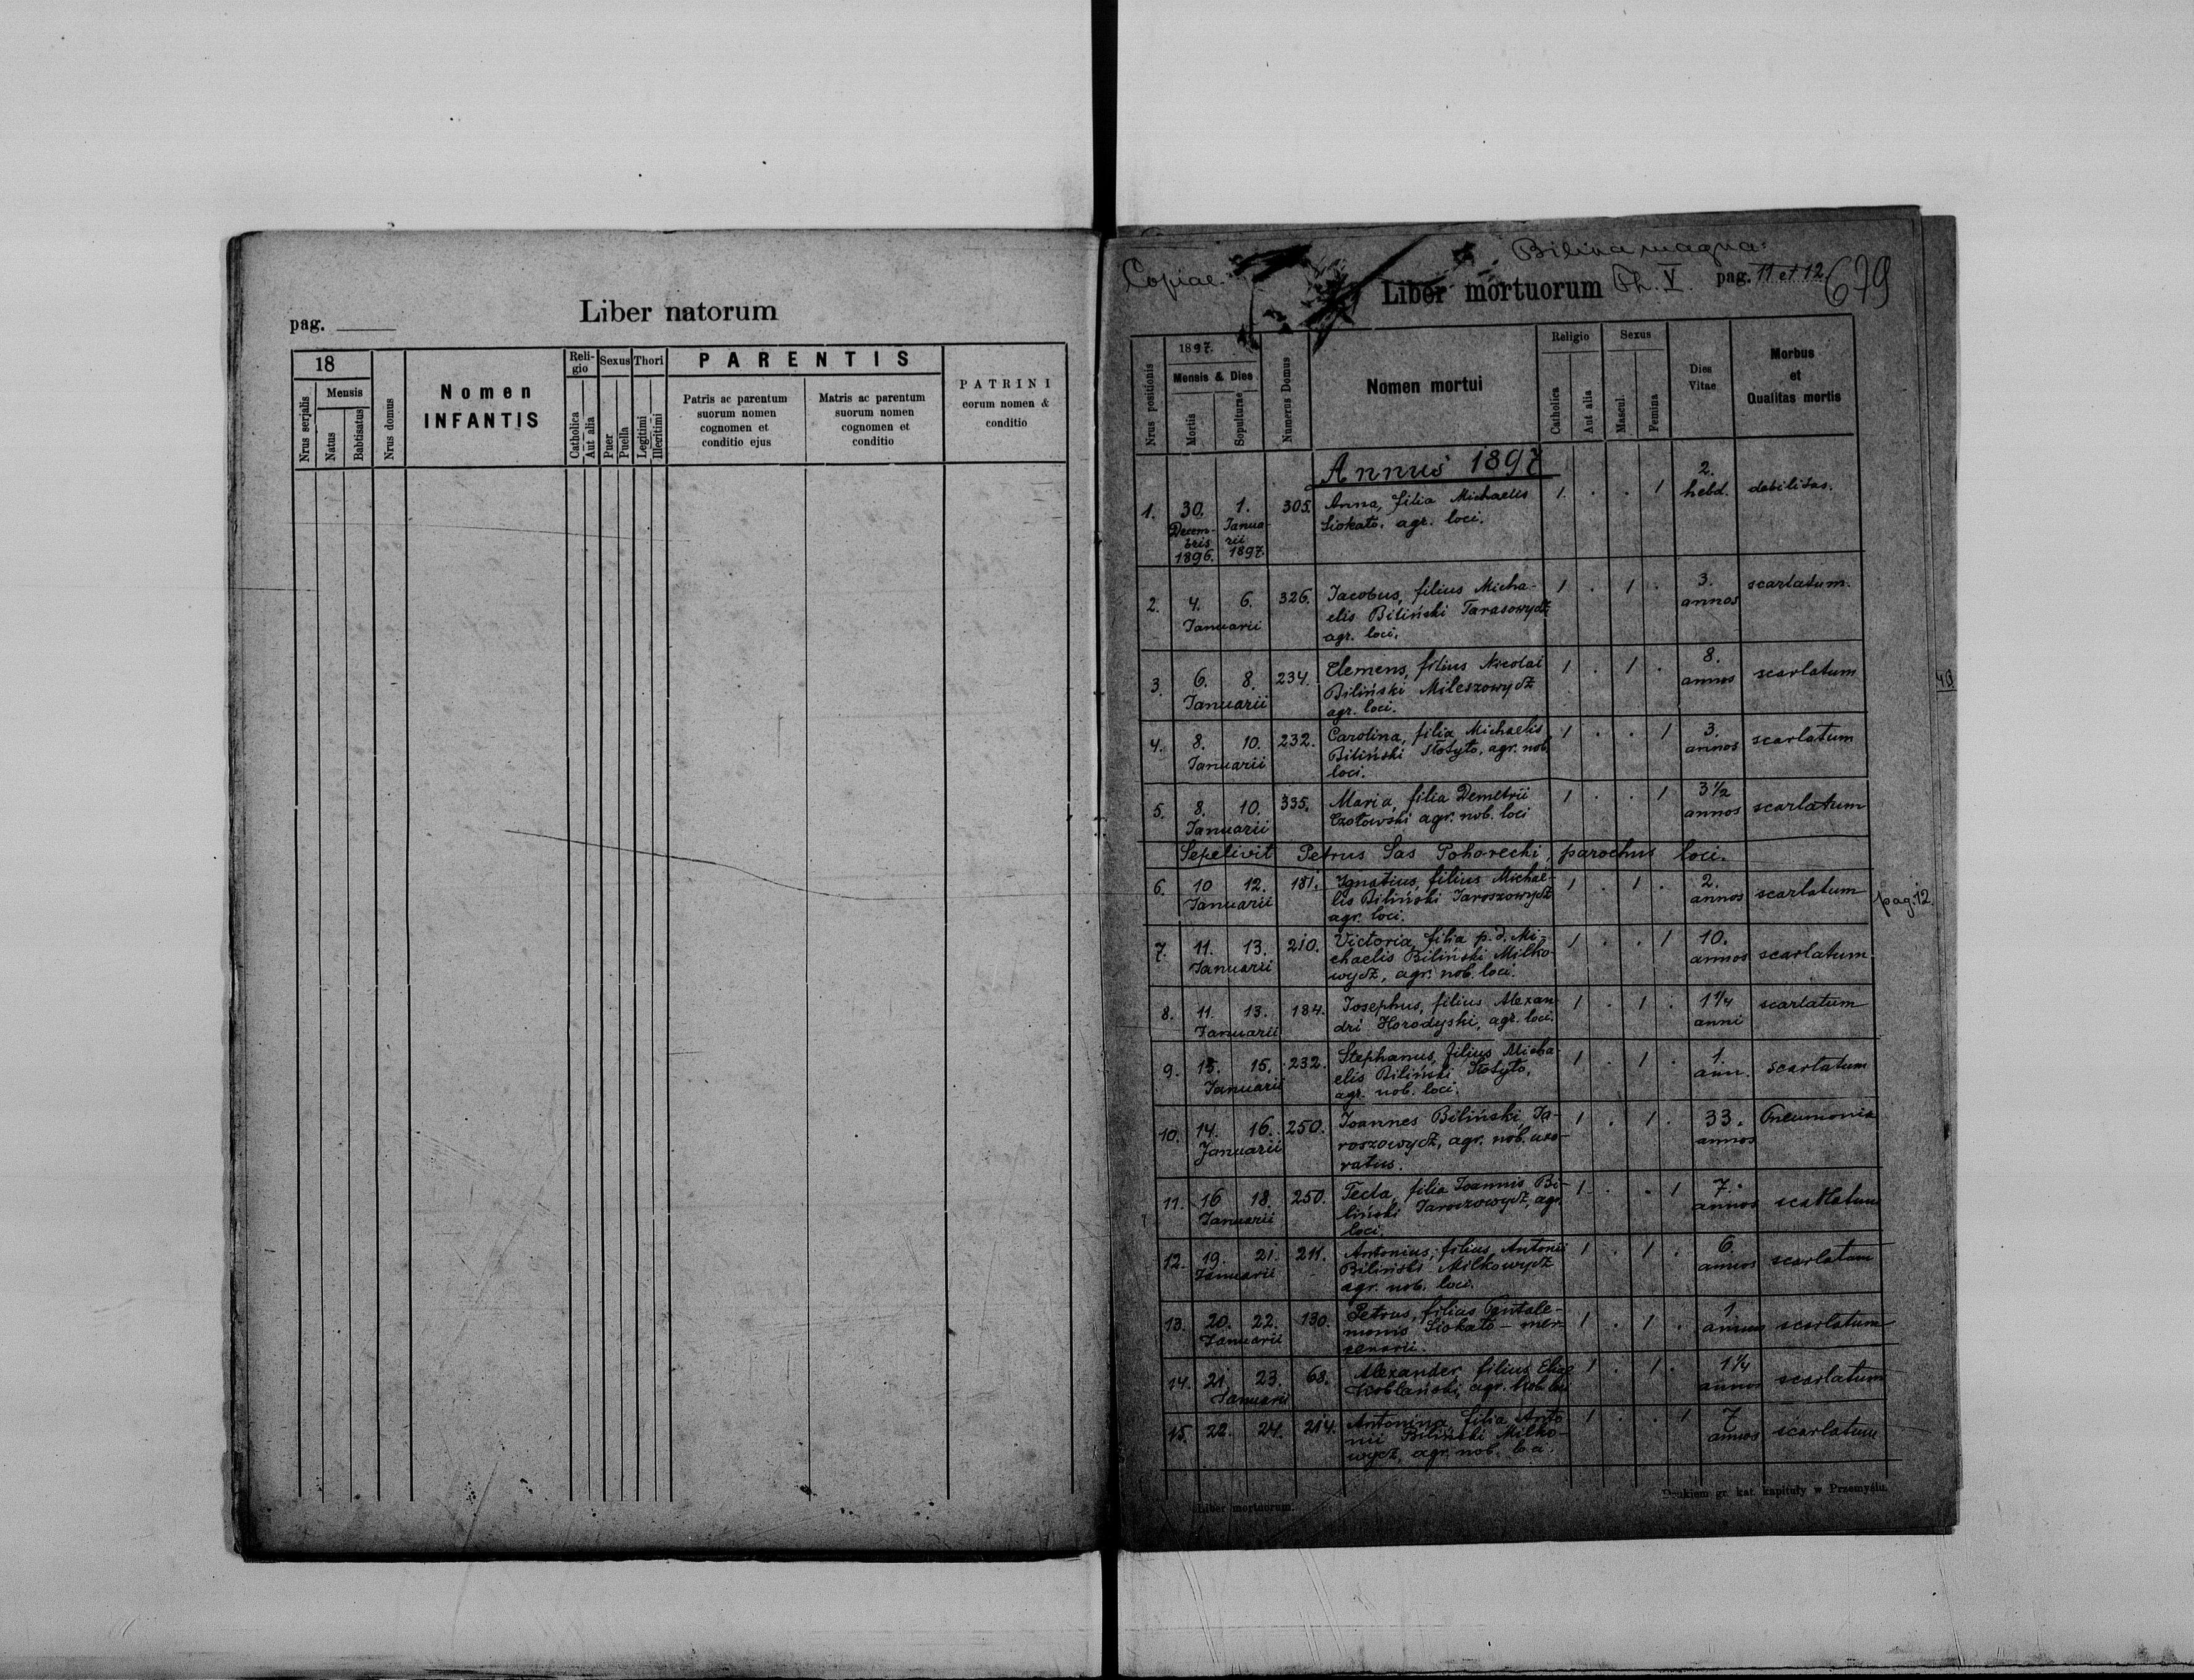 Liber natorum
pag.
18
Nrus serjalis
Mensis
Natus
Babtisatus
Nrus domus
Nomen
INFANTIS
Reli-
gio
Catholica
Aut alia
Sexus
Puer
Puella
Thori
Legitimi
Illeritimi
PARENTIS
Patris ac parentum
suorum nomen
cognomen et
conditio ejus
Matris ac parentum
suorum nomen
cognomen et
conditio
PATRINI
eorum nomen &
conditio
Bilina magna
Copiae
Liber mortuorum Th. V. pag. 11 et 12. 679
Nrus positionis
1897.
Mensis & Dies
Mortis
Sepulturae
Numerus Domus
Nomen mortui
Religio
Catholica
Aut alia
Sexus
Mascul.
Femina
Dies
Vitae
Morbus
et
Qualitas mortis
Annus 1897
1. 30. Decem-
bris
1896. 1. Janua-
rii
1897. 305. Anna, filia Michaelis
Siokało, agr. loci. 1 . . 1 2.
hebd. debilitas.
2. 4. 6.
Januarii 326. Jacobus, filius Micha-
elis Biliński Tarasowydż
agr. loci. 1 . 1 . 3.
annos scarlatum.
3. 6. 8.
Januarii 234. Clemens, filius Nicolai
Biliński Mileszowydż
agr. loci. 1 . 1 . 8.
annos scarlatum
4. 8. 10.
Januarii 232. Carolina, filia Michaelis
Biliński Słotyło, agr. nob.
loci. 1 . . 1 3.
annos scarlatum
5. 8. 10.
Januarii 335. Maria, filia Demetrii
Czołowski agr. nob. loci 1 . . 1 3 1/2
annos scarlatum
Sepelivit Petrus Sas Pohorecki, parochus loci.
6. 10 12.
Januarii 181. Ignatius, filius Michae-
lis Biliński Jaroszowydż
agr. loci. 1 . 1 . 2.
annos scarlatum pag. 12.
7. 11. 13.
Januarii 210. Victoria, filia p. d. Mi-
chaelis Biliński Milko-
wydż, agr. nob. loci. 1 . . 1 10.
annos scarlatum.
8. 11. 13.
Januarii 184. Josephus, filius Alexan-
dri Horodyski, agr. loci. 1 . 1 . 1 1/4
anni scarlatum
9. 13. 15.
Januarii 232. Stephanus, filius Micha-
elis Biliński Słotyło,
agr. nob. loci. 1 . 1 . 1.
ann. scarlatum
10. 14. 16.
Januarii 250. Joannes Biliński Ja-
roszowydż, agr. nob. uxo-
ratus. 1 . 1 . 33.
annos Pneumonia
11. 16 18.
Januarii 250. Tecla, filia Joannis Bi-
liński Jaroszowydż, agr.
loci. 1 . . 1 7.
annos scarlatum
12. 19. 21.
Januarii 211. Antonius, filius Antonii
Biliński Milkowydż
agr. nob. loci. 1 . 1 . 6.
annos scarlatum
13. 20. 22.
Januarii 130. Petrus, filius Pantale-
monis Siokało - mer-
cenarii. 1 . 1 . 1.
annus scarlatum
14. 21. 23.
Januarii 68. Alexander, filius Eliae
agr. nob. 1 . 1 . 1 1/4
annos scarlatum
15. 22. 24. 214. Antonina, filia Anto-
nii Biliński Milko-
wydż, agr. nob. loci. 1 . . 1 7
annos scarlatum
Liber mortuorum.
Drukiem gr. kat. kapituły w Przemyślu.